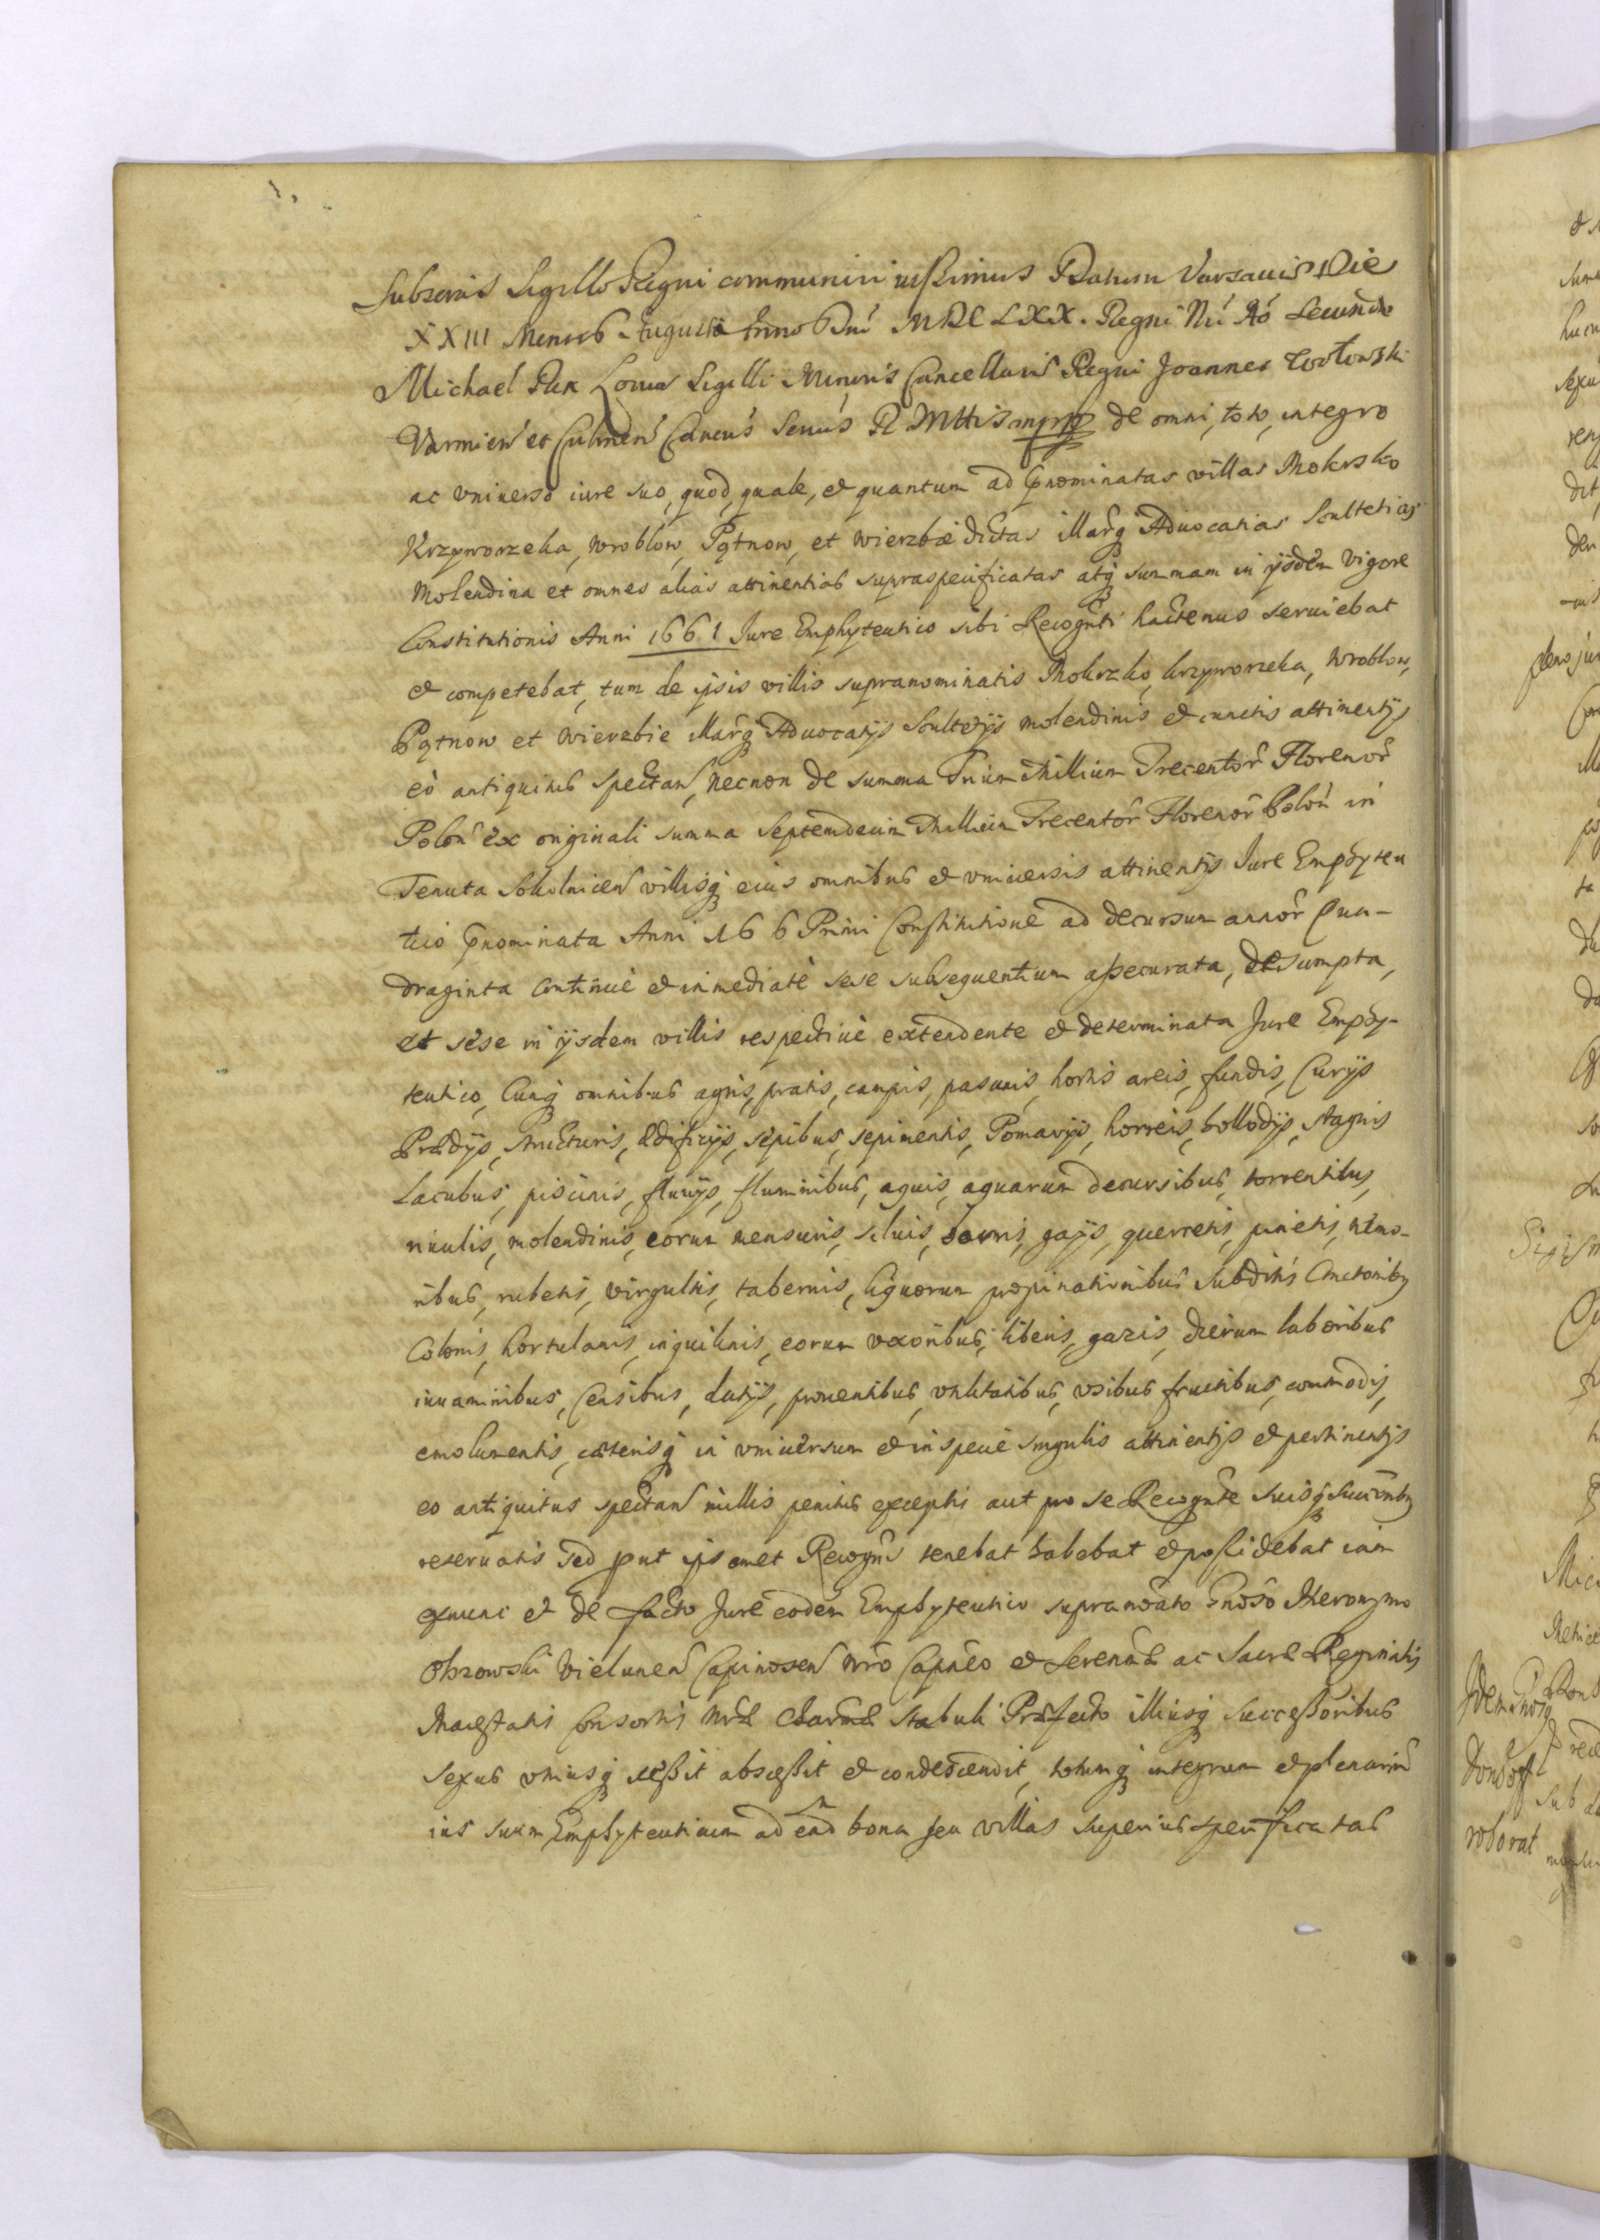 Subscrips Sigillo Regni communiri iussimus Datum Varsaviæ Die
XXIII Mensis Augusti Anno Dni MDCLXX. Regni Nri Ao Secundo
Michael Rex Locus Sigilli Minoris Cancellariæ Regni Joannes
Varmien et Culmen Cancus R Mttis mpp de omni, toto, integro
ac vniuerso iure suo, quod, quale, et quantum ad prnominatas villas Mokrsko
Krzyworzeka, Wroblow, Pątnow, et Wierzbie dictas illarq Aduocatias Scultetias
Molendina et omnes alias attinentias supraspecificatas atq summam in ysdem vigore
Constitutionis Anni 1661 Jure Emphyteutico sibi Recognti hactenus seruiebat
et competebat, tum de ipsis villis supranominatis Mokrzko, krzyworzeka, Wroblow,
Pątnow et Wierzbie illarq Aduocatys Scultetys molendinis et cunctis attinentys
eò antiquitus spectan, necnon de summa Trium Millium Trecentor Florenor
Polon ex originali summa Septemdecim Millium Trecentor Florenor Polon in
Tenuta Sokolnicen villisq eius omnibus et vniuersis attinentys Jure Emphyteu
tico prnominata Anni 166 Primi Constitutione ad decursum annor Qua-
draginta continuè et inmediatè sese subsequentium assecurata, desumpta,
et sese in ysdem villis respectiuè extendente et determinata Jure Emphy-
teutico, Cumq omnibus agris, pratis, campis, pascuis, hortis areis, fundis, Curys
Prædys, structuris, Ædificys, sepibus, sepimentis, Pomarys, horreis, bracys, stagnis
Lacubus, piscinis, fluuys, fluminibus, aquis, aquarum decursibus, torrentibus,
riuulis, molendinis, eorum mensuris, siluis, borris, gays, quercetis, pinetis, nemo-
ribus, rubetis, virgultis, tabernis, liquorum propinationibus Subditis Cmetonibq
Colonis, hortulanis, inquilinis, eorum vxoribus, liberis, gazis, dierum laboribus
iuuaminibus, Censibus, datys, prouentibus, vtilitatibus, vsibus fructibus, commodis,
emolumentis, cæterisq in vniuersum et in specie singulis attinentys et pertinentys
eo antiquitus spectan nullis penitus exceptis aut pro se Recognte suisq Succribq
reseruatis sed prut ipsemet Recogns tenebat habebat et possidebat iam
exnunc et de facto Jure eodem Emphyteutico supranoato Gnoso Hieronymo
Olszowski Vielunen Capinosen nro Capneo et Serenmæ ac Sacræ Reginalis
Maiestatis Consortis nræ Charmæ stabuli Præfecto illiusq successoribus
sexus vtriusq cessit abscessit et condescendit, totumq integrum et plenarium
ius suum Emphyteuticum ad ead bona seu villas superius specificatas